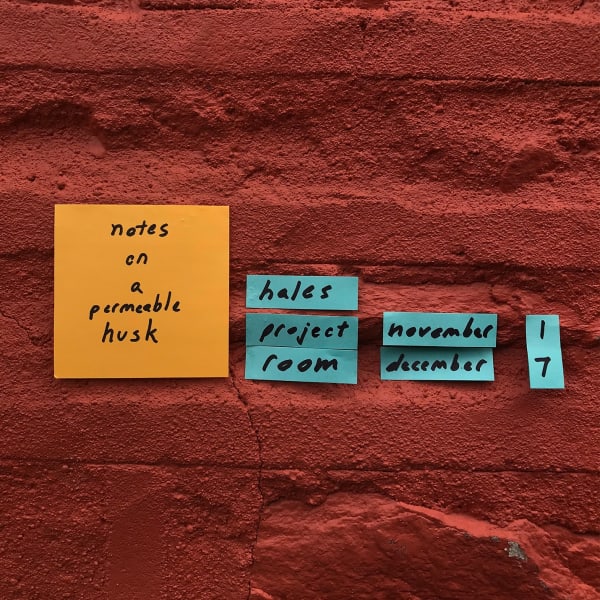 notes
on
a
permeable
husk
hales
project
room
november 1
december 7